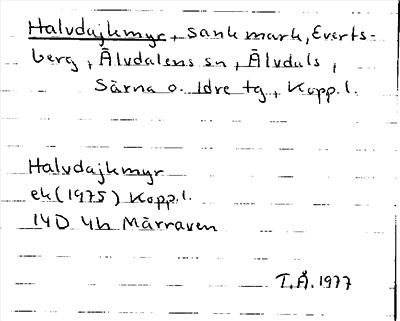 Halvdajkmyr, sank mark, Everts-
berg, Älvdalens sn, Älvdals,
Särna o. Idre tg, Kopp.l.
Halvdajkmyr
ek (1975) Kopp.l.
14D 4h Märraven
T.Å. 1977